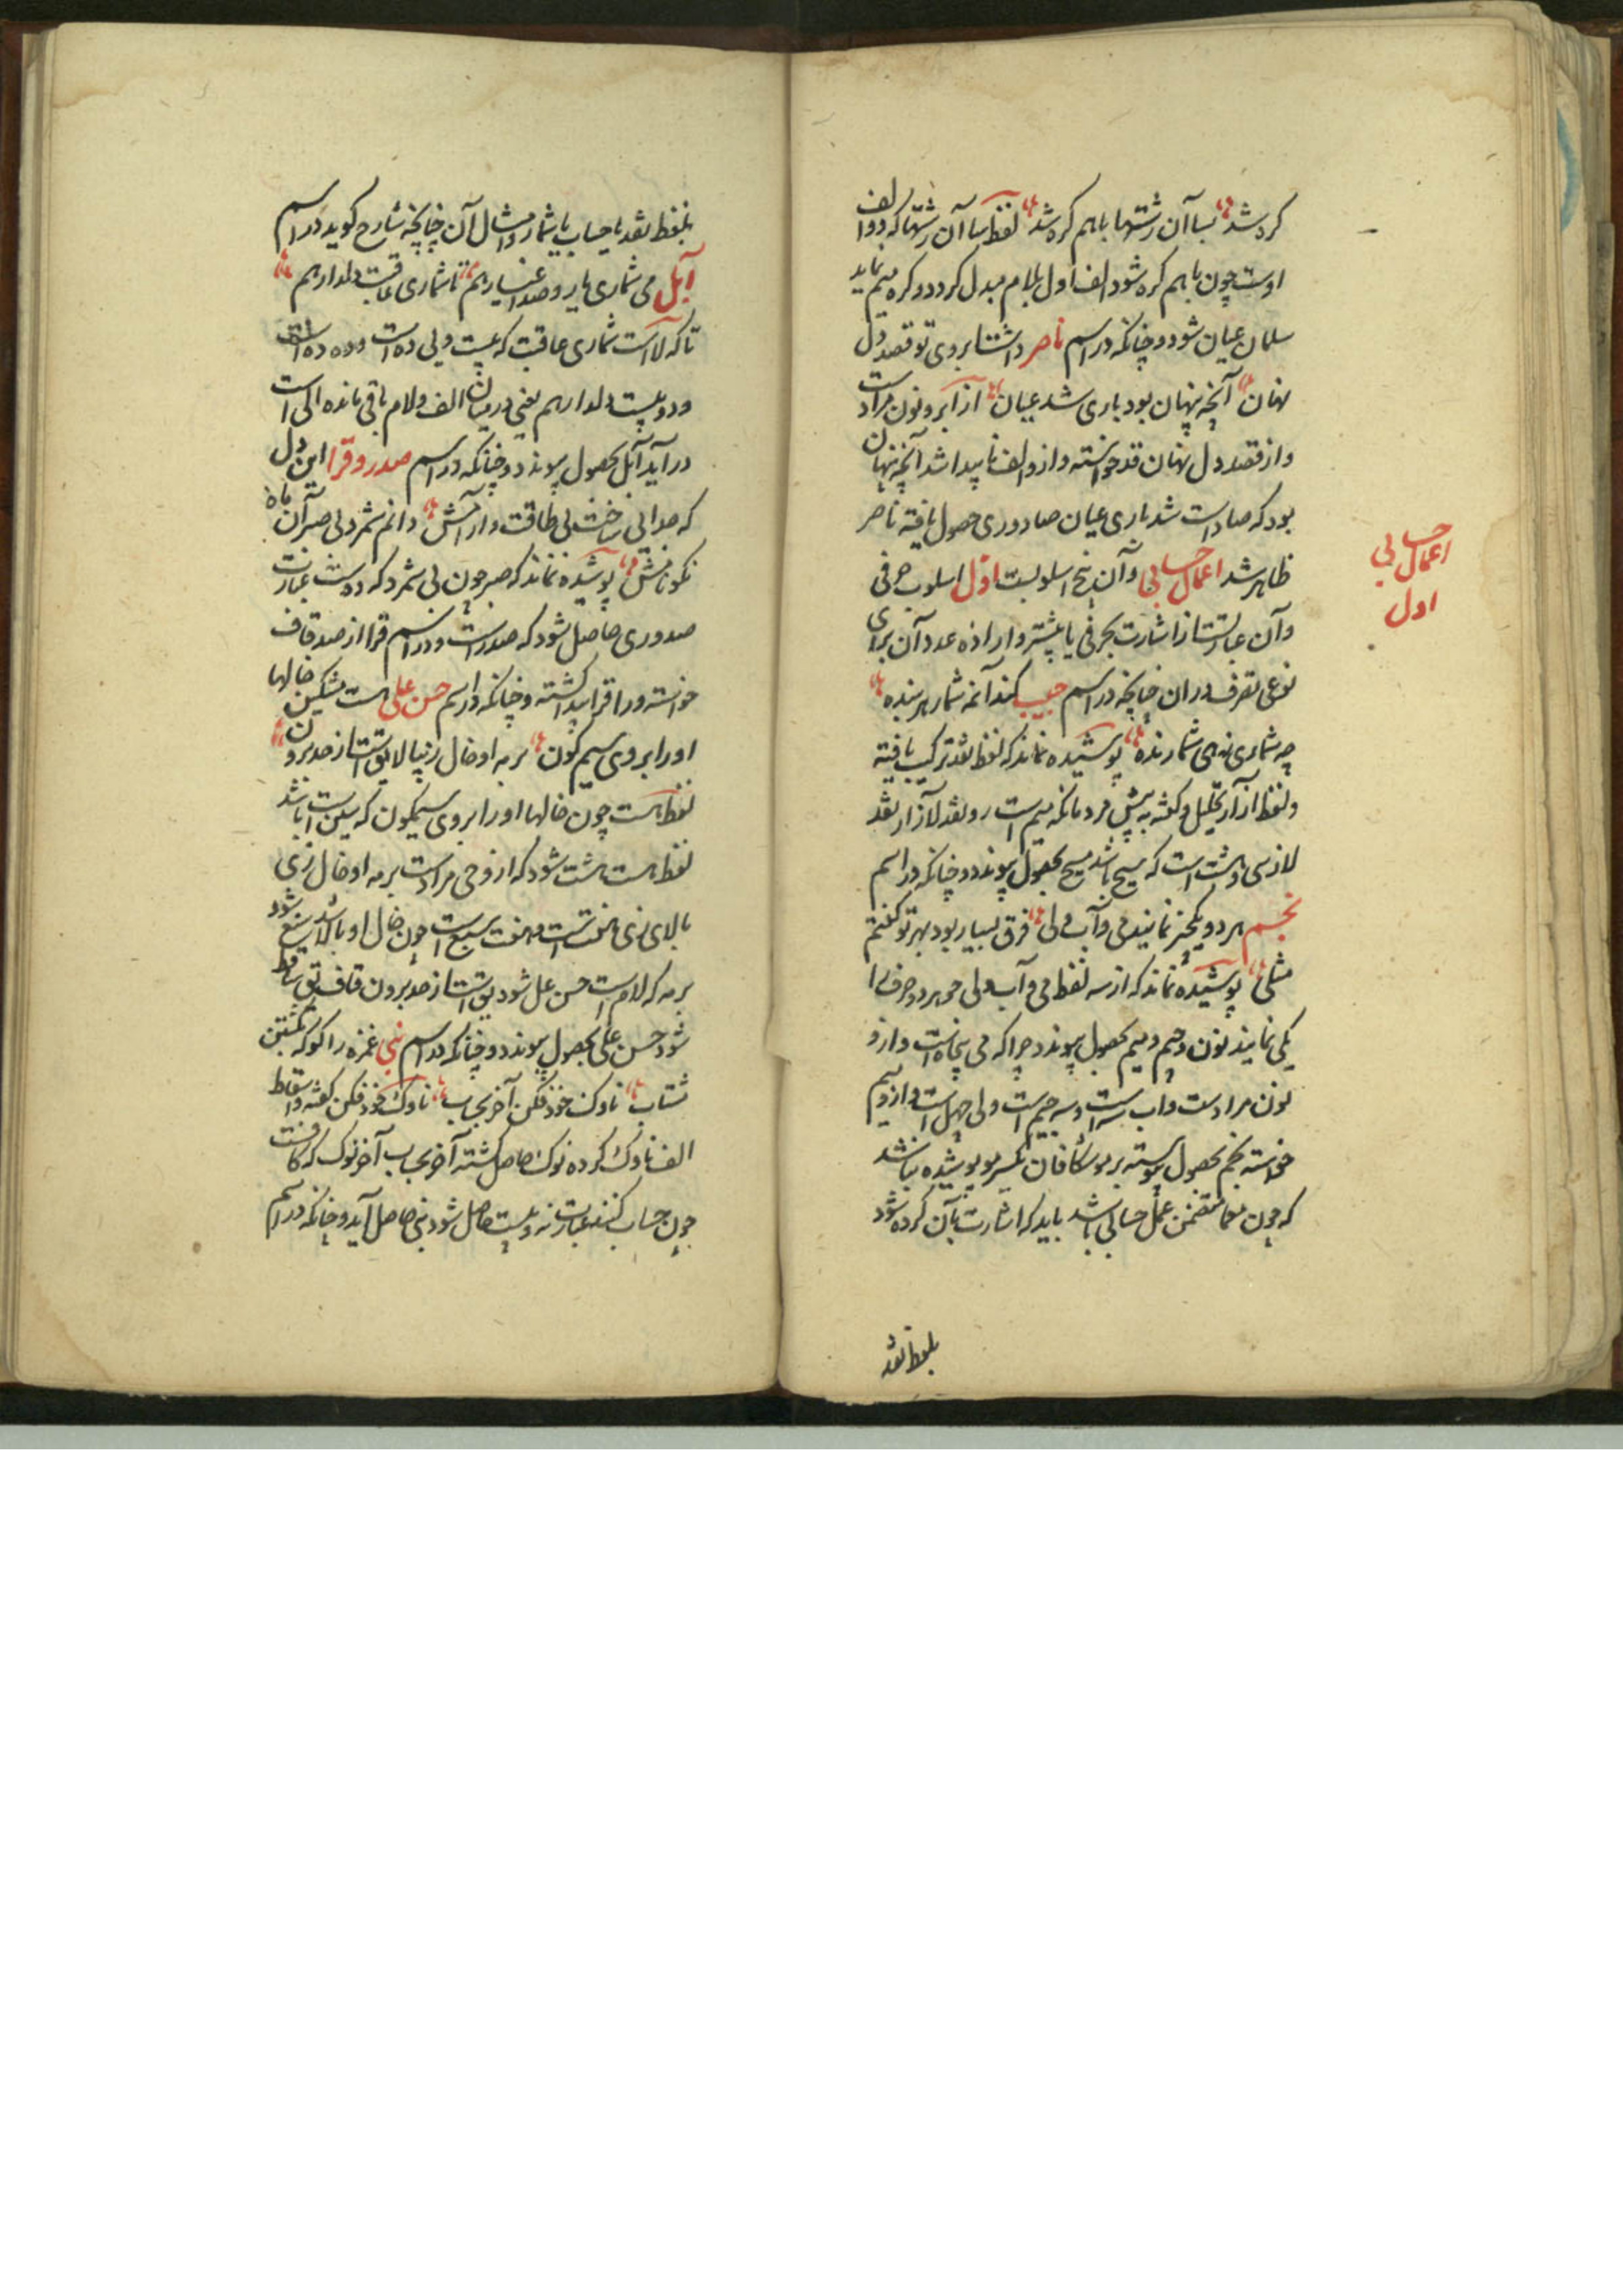 کرد شد بسا آن رشتها باهم کره شد لفظ بسا آن رشتها که دو الف
اوست چون باهم کره شود الف اول بلام مبدل کردد و کره میم نماید
سلمان عیان شود و چنانکه در اسم ناصر داشت ابروی تو قصد دل
نهان آنچه پنهان بود باری شد عیان از ابرو نون مراد است
و از قصد دل نهان قد خواسته و ازو الف ناپیدا شد آنچه پنهان
بود که صاد است شد باری عیان صاد و ری حصول یافته ناصر
ظاهر شد اعمال حسابی و آن پنج اسلوبست اول اسلوب حرفی
و آن عبارتست از اشارت بحرفی یا بیشتر و اراده عدد آن برای
نوعی تصرف در آن چنانچه در اسم حبیب کند آنمه شمار هر بنده
چه شماری نهی شمارنده پوشیده نماند که لفظ نقد ترکیب یافته
و لفظ از آر تحلیل و کشته به پیش مرد مانکه میم است رو نقد لازار نقد
لازسی و هشت است که مسیح باشد مسیح بحصول پیوندد و چنانکه در اسم
نجم هر دو یکچیز نمایند می و آب ولی فرق بسیار بود بهر تو گفتم
مثلی پوشیده نماند که از سه لفظ می و آب ولی هر دو حرف را
یکی نمایند نون و جیم و میم بحصول پیوندد چرا که می پنجاه است و ازو
نون مراد است و آب سه است و سه جیم است ولی چهل است و ازو میم
خواسته نجم بحصول پیوسته بر موشکافان اکسیر مو پوشیده نباشد
که چون معما متضمن عمل حسابی باشد باید که اشارت بآن کرده شود
بلفظ نقد
اعمال حسابی
اول
بلفظ نقد یا حساب یا شمار و امثال آن چنانچه شارح کوید در اسم
آبل می شماری یار و صد اغیار هم تا شماری عاقبت دلدار هم
تا که لا است شماری عاقبت که بیست و بی ده است و ده ده است
و دو بیست دلدار هم یعنی در میان الف و لام باقی مانده الی است
در آید آبل بحصول پیوندد و چنانکه در اسم صدر و قرا این دل
که صدائی ساخت بی طاقت و آرامش دانم شمرد بی صبر آن ماه
نکو نامش پوشیده نماند که صبر چون بی شمرد که دو است عبارت
صدوری حاصل شود که صدر است و در اسم قرا از صد قاف
خواسته و را قرا پیدا کشته و چنانکه در اسم حسن علی هست مشکین خالها
او را بروی سیم کون بر مه او خال زیبا لایق است از حد برون
لفظ هست چون خالها او را بروی سیمکون که سین است باشد
لفظ هست هشت شود که ازو حی مراد است بر مه او خال زی
بالای زی هفت است و هفت سبع است چون خال او بالا باشد تسع شود
بر مه که لام است حسن عل شود یق است از حد برون قاف یق ساقط
شود حسن علی بحصول پیوندد و چنانکه در اسم نبی غمزه را کو که بکشتن
شتاب ناوک خود فکن آخر بحساب ناوک خود فکن کفته و اسقاط
الف ناوک کرده نوک حاصل کشته آخر بحساب آخر نوک که کافست
چون حساب کنند عبارت نه و بیست حاصل شود نبی حاصل آید و چنانکه در اسم